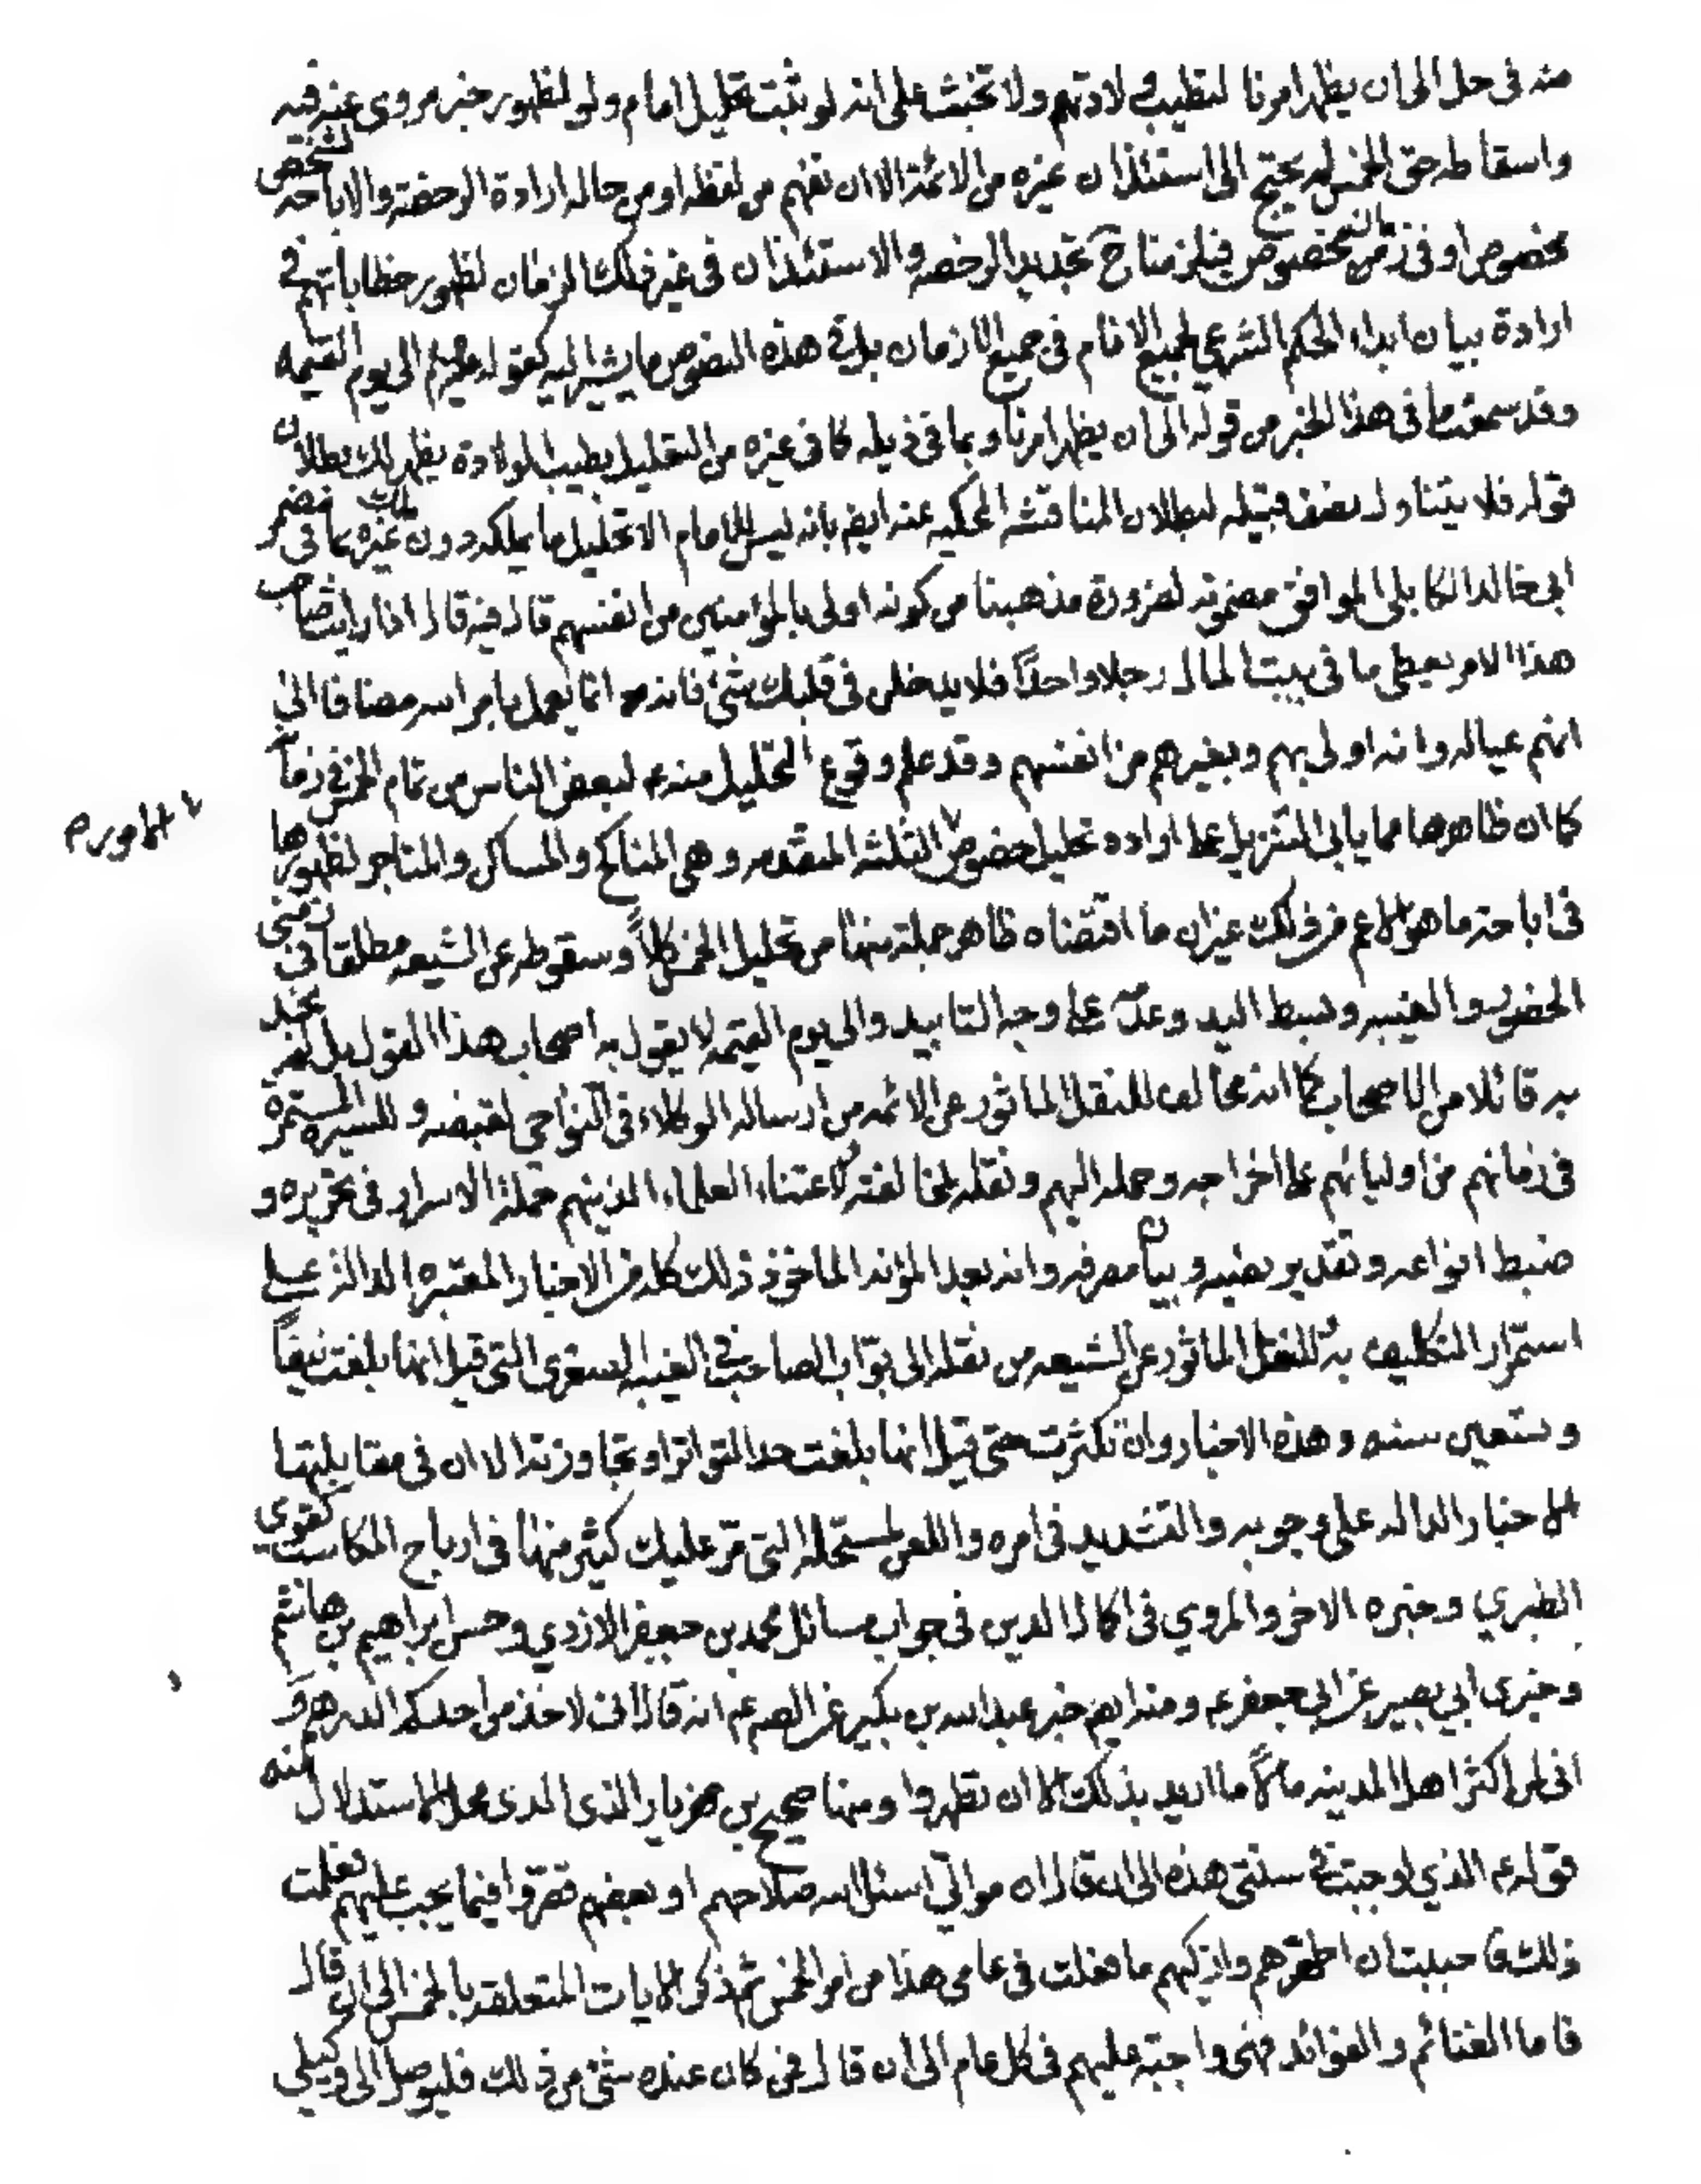 منه في حل الى ان يظهر امرنا لتطيب ولادتهم ولا تخبث على انه لو ثبت تحليل امام ولو لظهور خبر مروى عنه فيه
واسقاطه حق الخمس لم يحتج الى استئذان غيره من الائمة الا ان نفهم من لفظه او من حاله ارادة الرخصة والاباحة لشخص
مخصوص او في زمن مخصوص فيلزمنا ح تجديد الرخصه والاستئذان في غير ذلك الزمان لظهور خطاباتهم في
ارادة بيان ابداء الحكم الشرعي لجميع الانام في جميع الازمان بل في هذه النصوص ما يشير اليه كقوله الى يوم القيمه
وقد سمعت ما في هذا الخبر من قوله الى ان يظهر امرنا وبما في ذيله كما في غيره من التعليل بطيب الولادة يظهر لك بطلان
قوله فلا يتناول لبطلان المناقشه المحكيه عنه ايض بانه ليس للامام الا تحليل ما يملكه دون ملك غيره بما في خبر
ابي خالد الكابلي الموافق مضمونه لضرورة مذهبنا من كونه اولى بالمؤمنين من انفسهم قال فيه قال اذا رايت صاحب
هذا الامر يعطى ما في بيت المال رجلا واحدًا فلا يدخلن في قلبك شئ فانه انما يعمل بامر الله مضافا الى
انهم عياله وانه اولى بهم وبغيرهم من انفسهم وقد علم وقوع التحليل منه لبعض الناس من تمام الخمس في زمانه
كما ان ظاهرها مما يابى التنزيل على اراده تحليل خصوص الثلثه المتقدمه وهى المناكح والمساكن والمتاجر لظهورها
في اباحة ما هو الاعم من ذلك غير ان ما اقتضاه ظاهر جملة منها من تحليل الخمس كلاً وسقوطه عن الشيعه مطلقا في زمنى
الحضور والغيبه وبسط اليد وعدمه على وجه التابيد والى يوم القيمه لا يقول به اصحاب هذا القول بل لم نجد
به قائلا من الاصحاب كما انه مخالف للنقل الماثور عن الائمه من ارساله الوكلاء في النواحى لقبضه وللسيره المستمرة
في زمانهم من اوليائهم على اخراجه وحمله اليهم ونقله لاعتناء العلماء الذينهم حملة الاسرار في تحريره و
ضبط انواعه وتقدير نصيبه وبيان مصرفه وانه بعد المؤنه الماخوذ ذلك كله من الاخبار المعتبره الداله على
استمرار التكليف به للنقل الماثور عن الشيعه من نقله الى نواب الصاحب في الغيبه الصغرى التي قيل انها بلغت نيفاً
وستعين سنه وهذه الاخبار وان تكثرت حتى قيل انها بلغت حد التواتر او تجاوزته الا ان في مقابلتها
الاخبار الداله على وجوبه والتشديد في امره واللعن لمستحله التي مر عليك كثير منها في ارباح المكاسب كقوى
الطبري وخبره الاخر والمروي في اكمال الدين في جواب مسائل محمد بن جعفر الازدي وحسن ابراهيم بن هاشم
وخبرى ابي بصير عن ابي جعفر ع ومنه ايض خبر عبد الله بن بكير عن الص ع انه قال انى لاخذ من احدكم الدرهم و
انى لمن اكثر اهل المدينه مالاً ما اريد بذلك الا ان تطهروا ومنها صحيح بن مهزيار الذى محل الاستدلال منه
قوله ع الذي اوجبت في سنتى هذه الى ان قال ان موالي اسئل الله صلاحهم او بعضهم قصروا فيما يجب عليهم فعلمت
ذلك فاحببت ان اطهرهم وازكيهم ما فعلت في عامى هذا من امر الخمس ثم ذكر الايات المتعلقه بالخمس الى ان قال
فاما الغنائم والفوائد فهى واجبة عليهم في كل عام الى ان قال فمن كان عنده شئ من ذلك فليوصل الى وكيلي